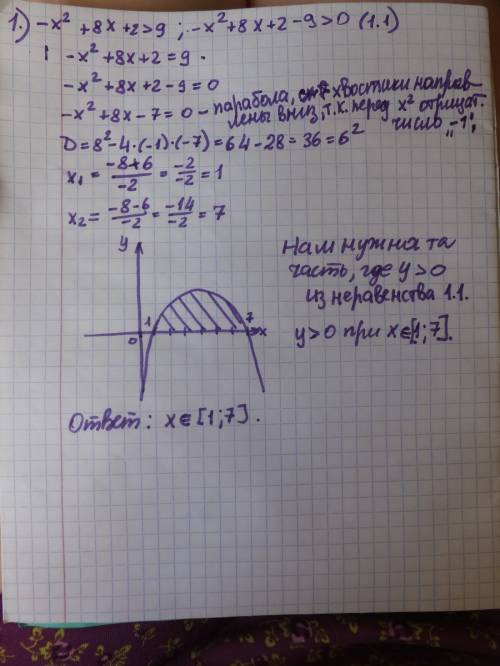 1.) -x² + 8x + 2 > 9 ; -x² + 8x + 2 - 9 > 0 (1.1)
-x² + 8x + 2 = 9.
-x² + 8x + 2 - 9 = 0
-x² + 8x - 7 = 0 - парабола, хвостики направ-
лены вниз, т.к. перед x² отрицат.
число „-1”;
D = 8² - 4·(-1)·(-7) = 64 - 28 = 36 = 6²
x₁ = (-8+6)/(-2) = (-2)/(-2) = 1
x₂ = (-8-6)/(-2) = (-14)/(-2) = 7
y
Нам нужна та
часть, где y > 0
из неравенства 1.1.
y > 0 при x ∈ [1; 7].
1 7 x
0
Ответ: x ∈ [1; 7].